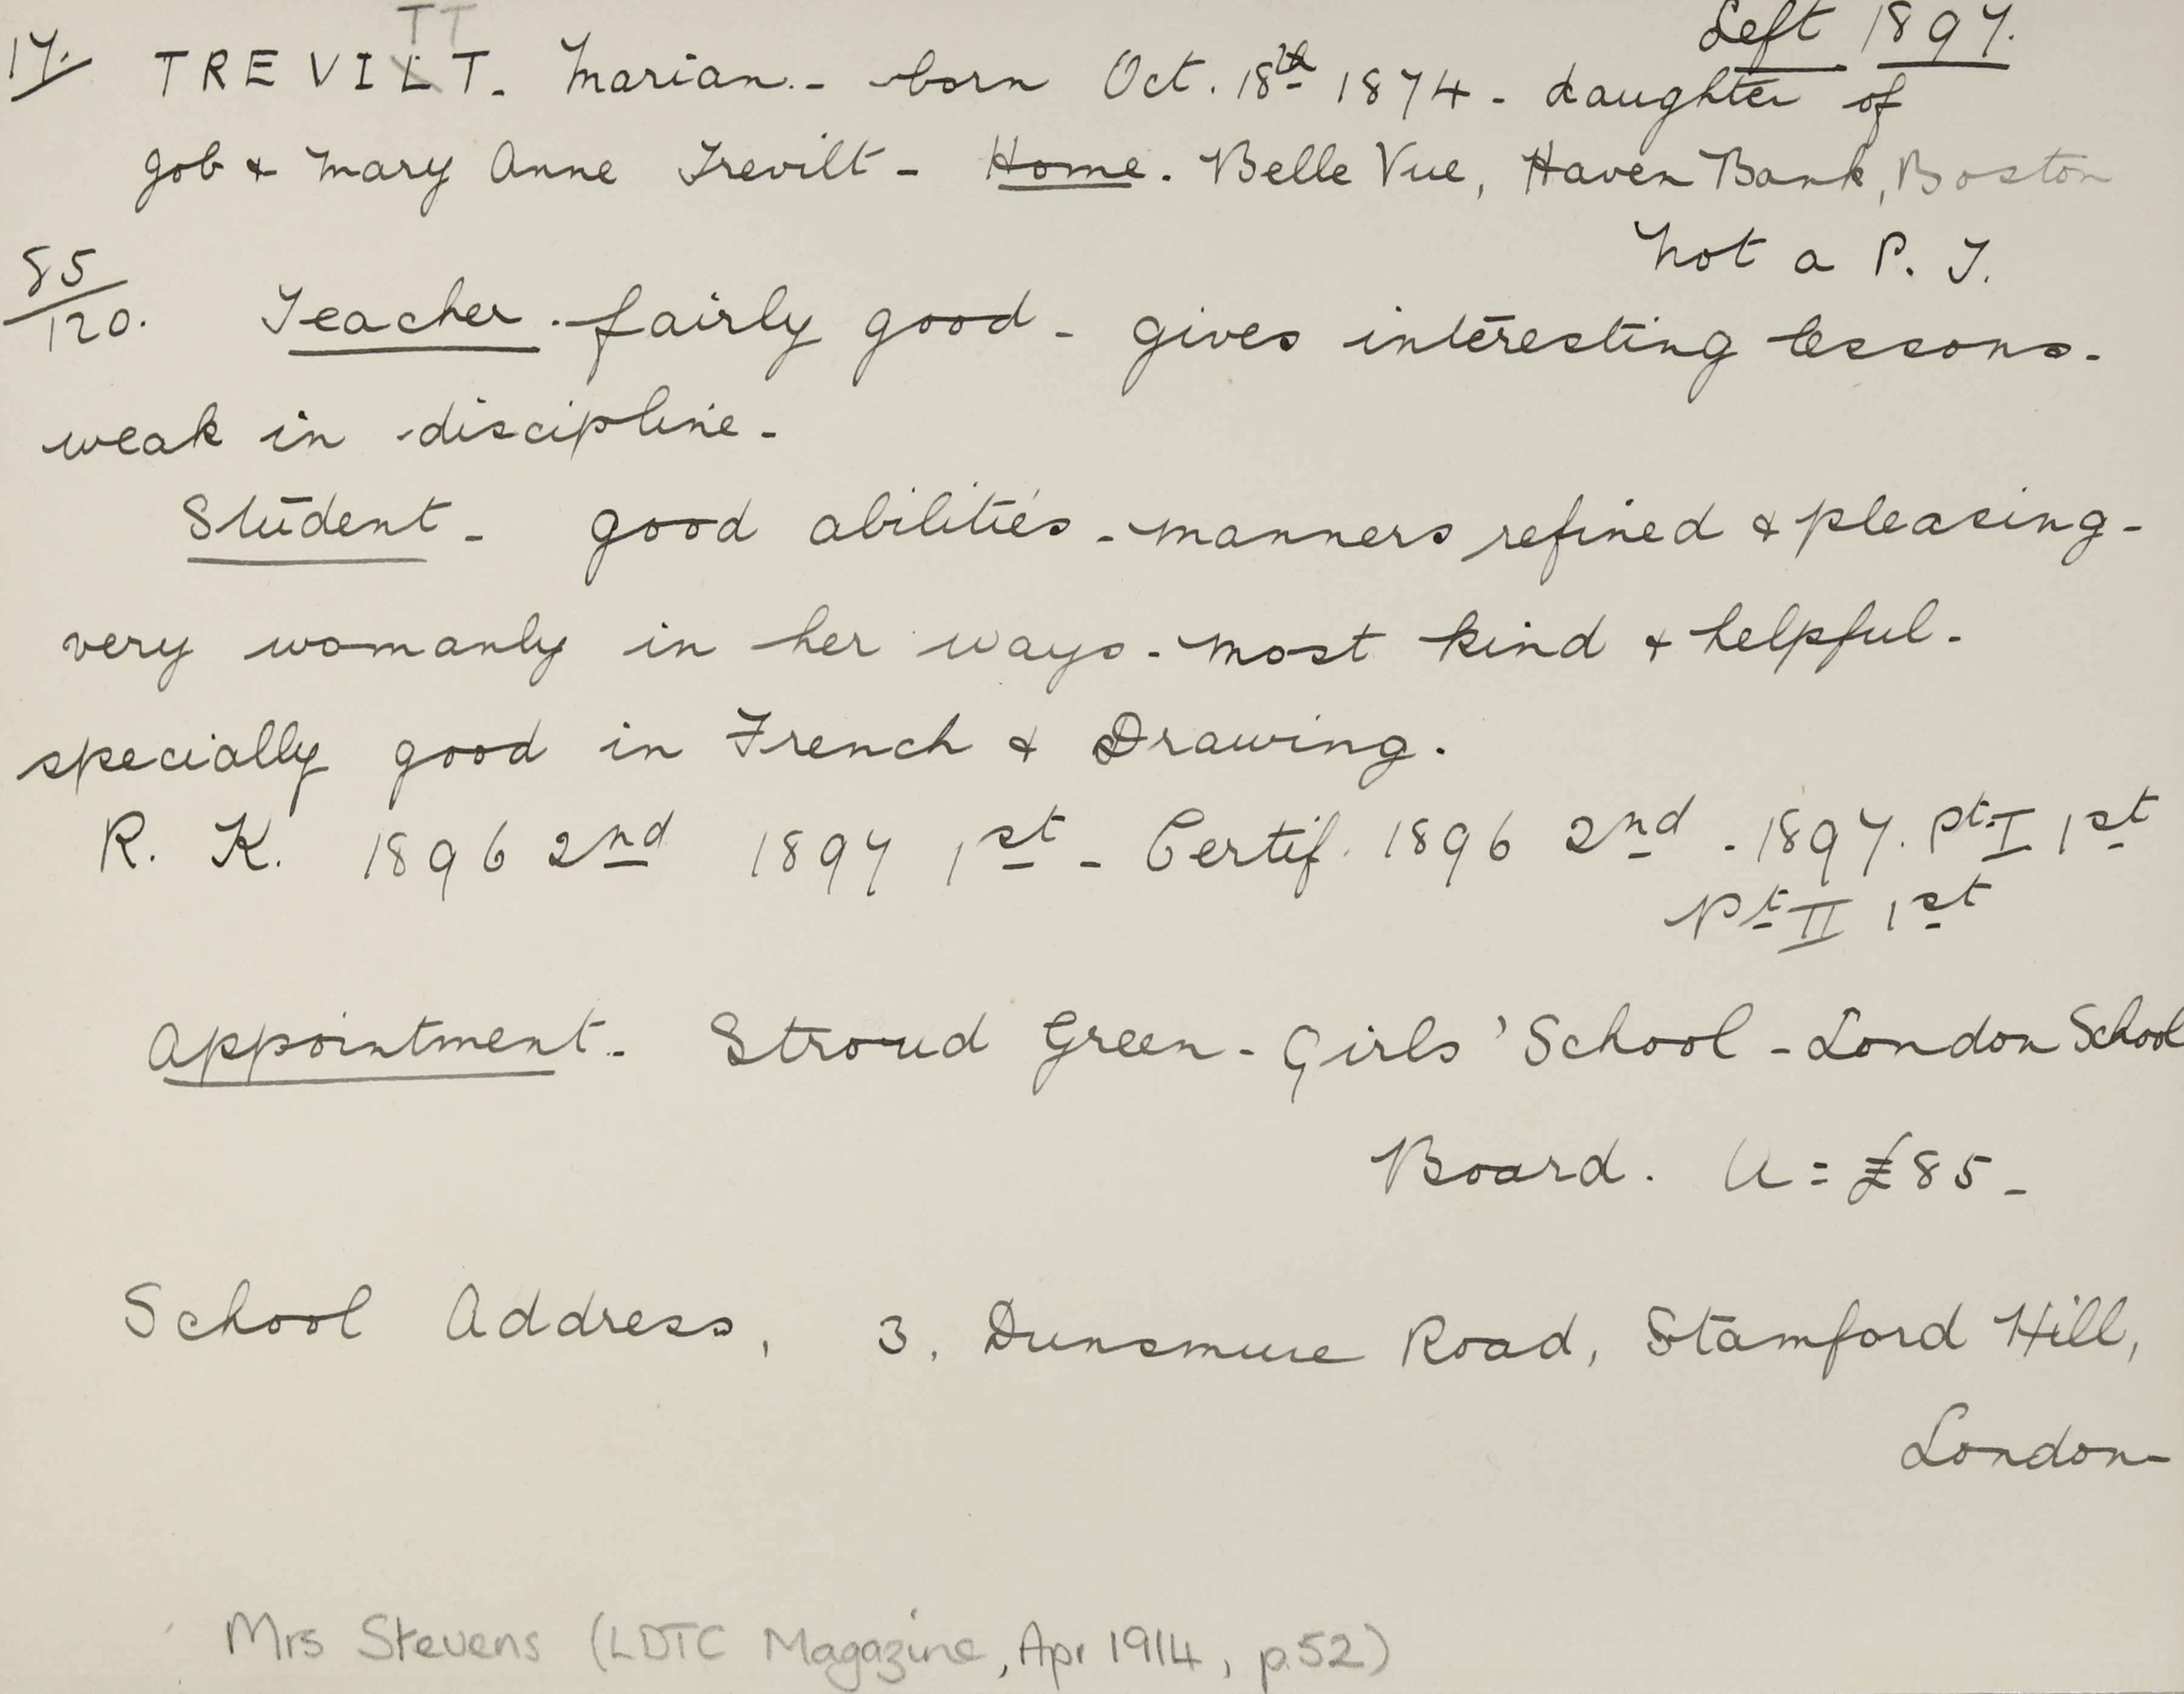 TT
Left 1897.
17. TREVILT. Marian. - born Oct. 18th 1874 - daughter of
Job & Mary Anne Trevilt - Home. Belle Vue, Haven Bank, Boston
Not a P. T.
85/120. Teacher. fairly good - gives interesting lessons.
weak in discipline -
Student - good abilities - manners refined & pleasing -
very womanly in her ways - most kind & helpful -
specially good in French & Drawing.
R. K. 1896 2nd 1897 1st - Certif. 1896 2nd - 1897. Pt. I 1st
Pt II 1st
Appointment - Stroud Green - Girls' School - London School
Board. A = £85 -
School Address, 3, Dunsmure Road, Stamford Hill,
London -
Mrs Stevens (LDTC Magazine, Apr 1914, p.52)